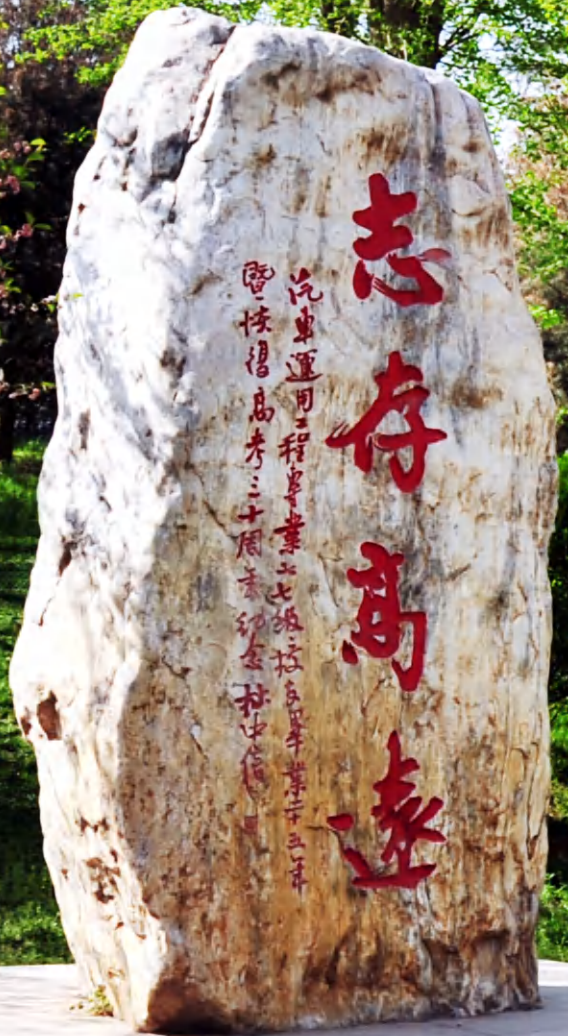 志存高遠
汽車運用工程專業七七級校友畢業二十五年
暨恢復高考三十周年紀念 林中信